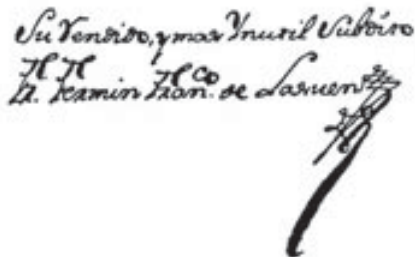 Su Rendido, y mas Ynutil Subdito
Fr. Fermin Franco. de Lasuen